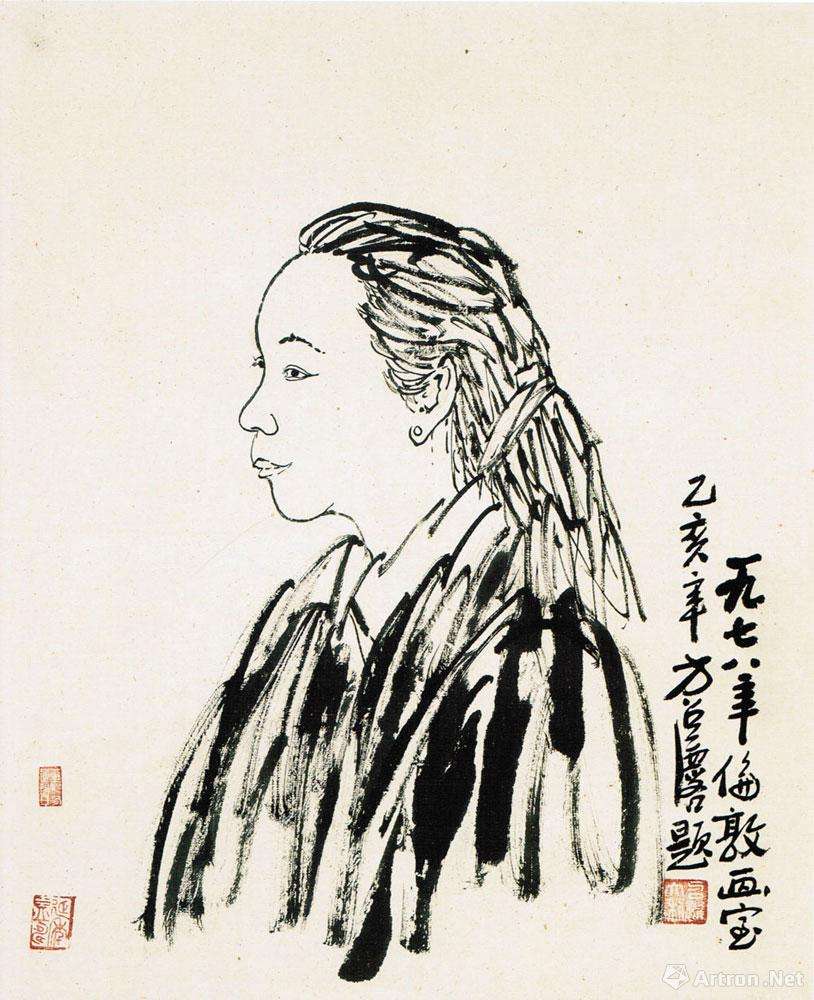 一九七八年倫敦画室
乙亥年方召麐題
Artron.Net